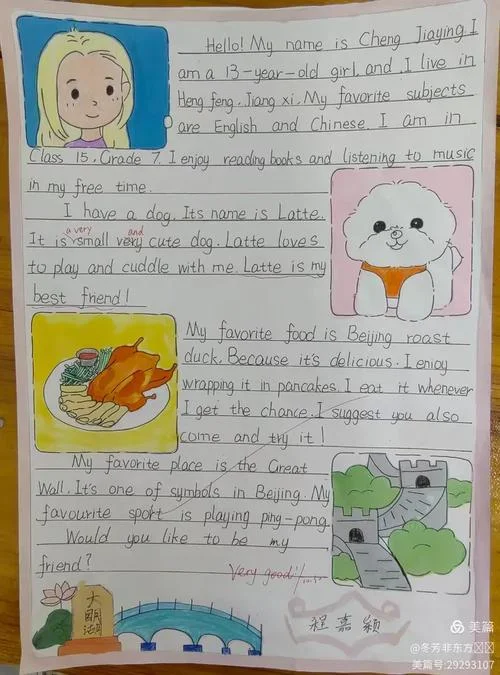 Hello! My name is Cheng Jiaying I
am a 13-year-old girl, and I live in
Heng feng, Jiang xi. My favorite subjects
are English and Chinese. I am in
Class 15, Grade 7. I enjoy reading books and listening to music
in my free time.
I have a dog. Its name is Latte.
a very and
It is small very cute dog. Latte loves
to play and cuddle with me. Latte is my
best friend!
My favorite food is Beijing roast
duck. Because it's delicious. I enjoy
wrapping it in pancakes. I eat it whenever
I get the chance. I suggest you also
come and try it!
My favorite place is the Great
Wall. It's one of symbols in Beijing. My
favourite sport is playing ping-pong.
Would you like to be my
friend?
Very good!
大明湖
程嘉颖
美篇
@冬芳非东方
美篇号:29293107